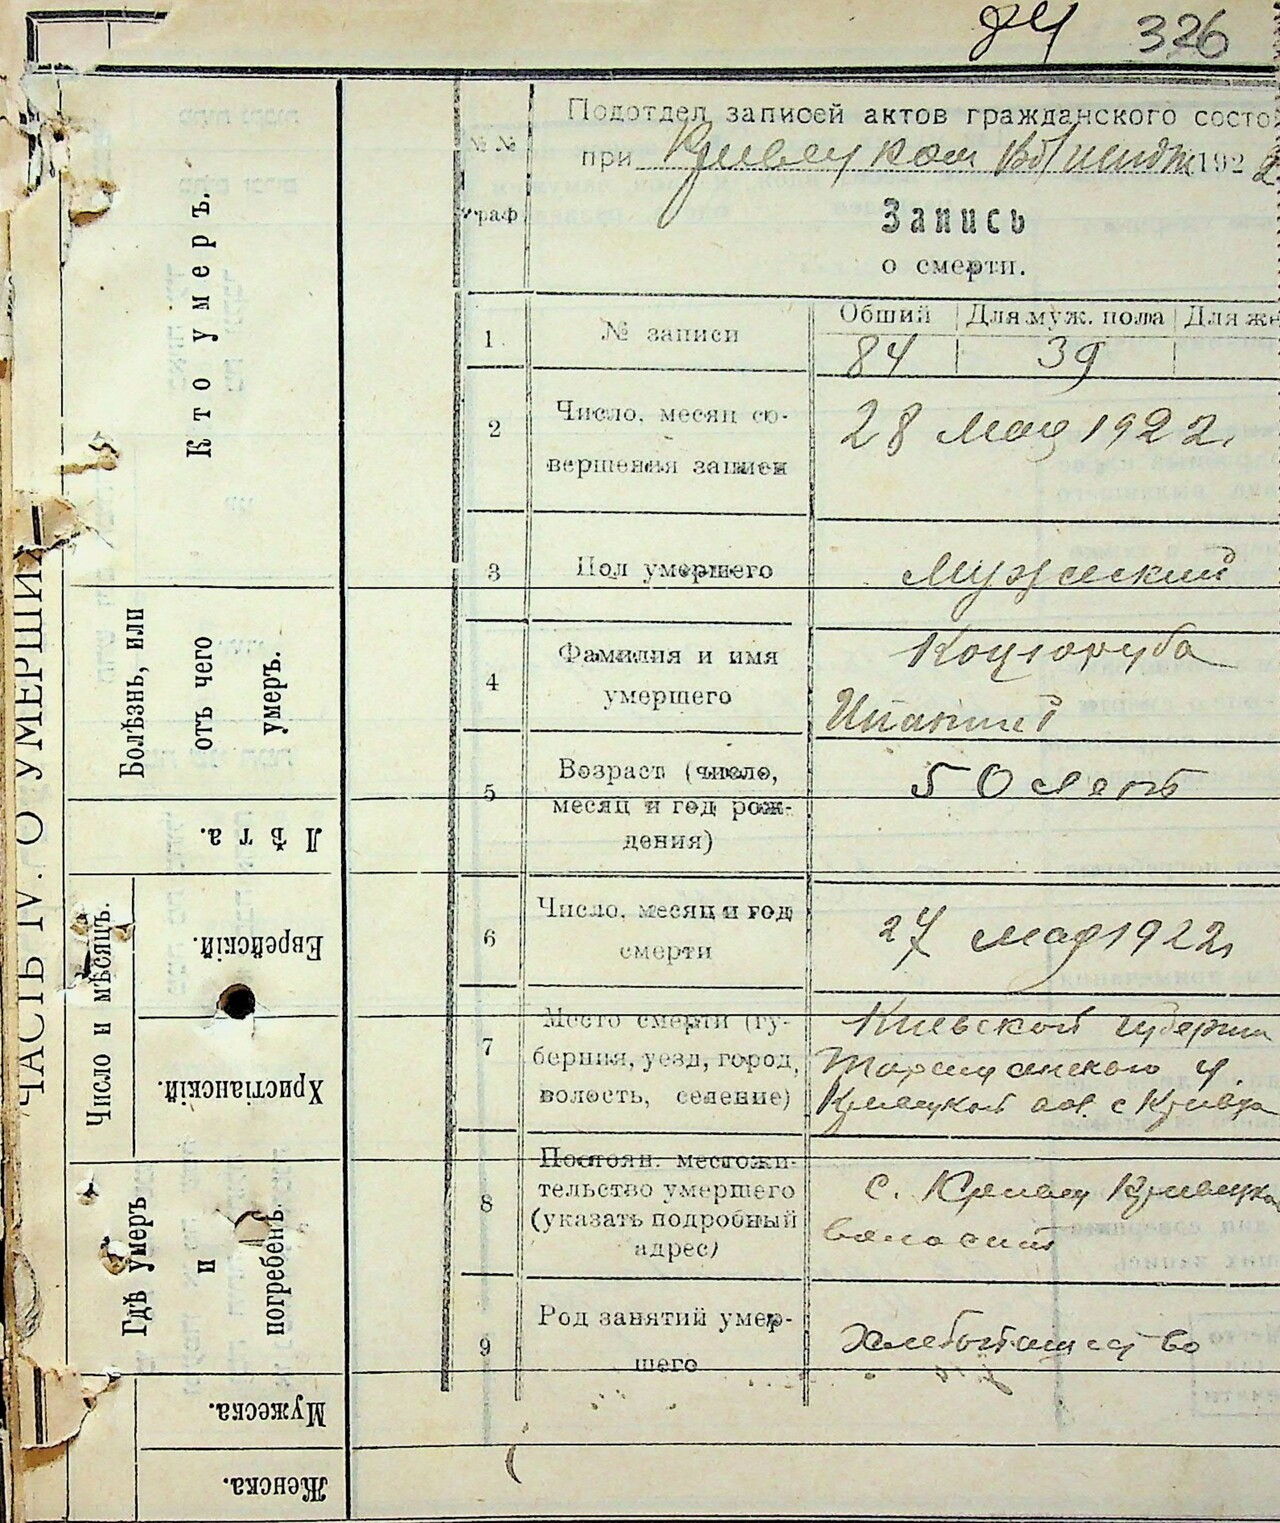 84 326
Подотдел записей актов гражданского состо
при Кривецком 1922
№ №
граф
Запись
о смерти.
1 № записи
Общий Для муж. пола Для же
84 39
2 Число, месяц со-
вершения записи
28 мая 1922
3 Пол умершего
Мужеский
4 Фамилия и имя
умершего
Коцюруба
Игнатий
5 Возраст (число,
месяц и год рож-
дения)
50 лет
6 Число, месяц и год
смерти
27 мая 1922
7 Место смерти (гу-
берния, уезд, город,
волость, селение)
Киевской губернии
Таращанского у.
Кривецкой вол. с Кривец
8 Постоян. местожи-
тельство умершего
(указать подробный
адрес)
с. Кривец Кривецкой
волости
9 Род занятий умер-
шего
хлебопашество
ЧАСТЬ IV. О УМЕРШИХ
Кто умеръ.
Болѣзнь, или
отъ чего
умеръ.
Лѣта.
Число и мѣсяцъ.
Еврейскій.
Христіанскій.
Гдѣ умеръ
и
погребенъ.
Мужеска.
Женска.